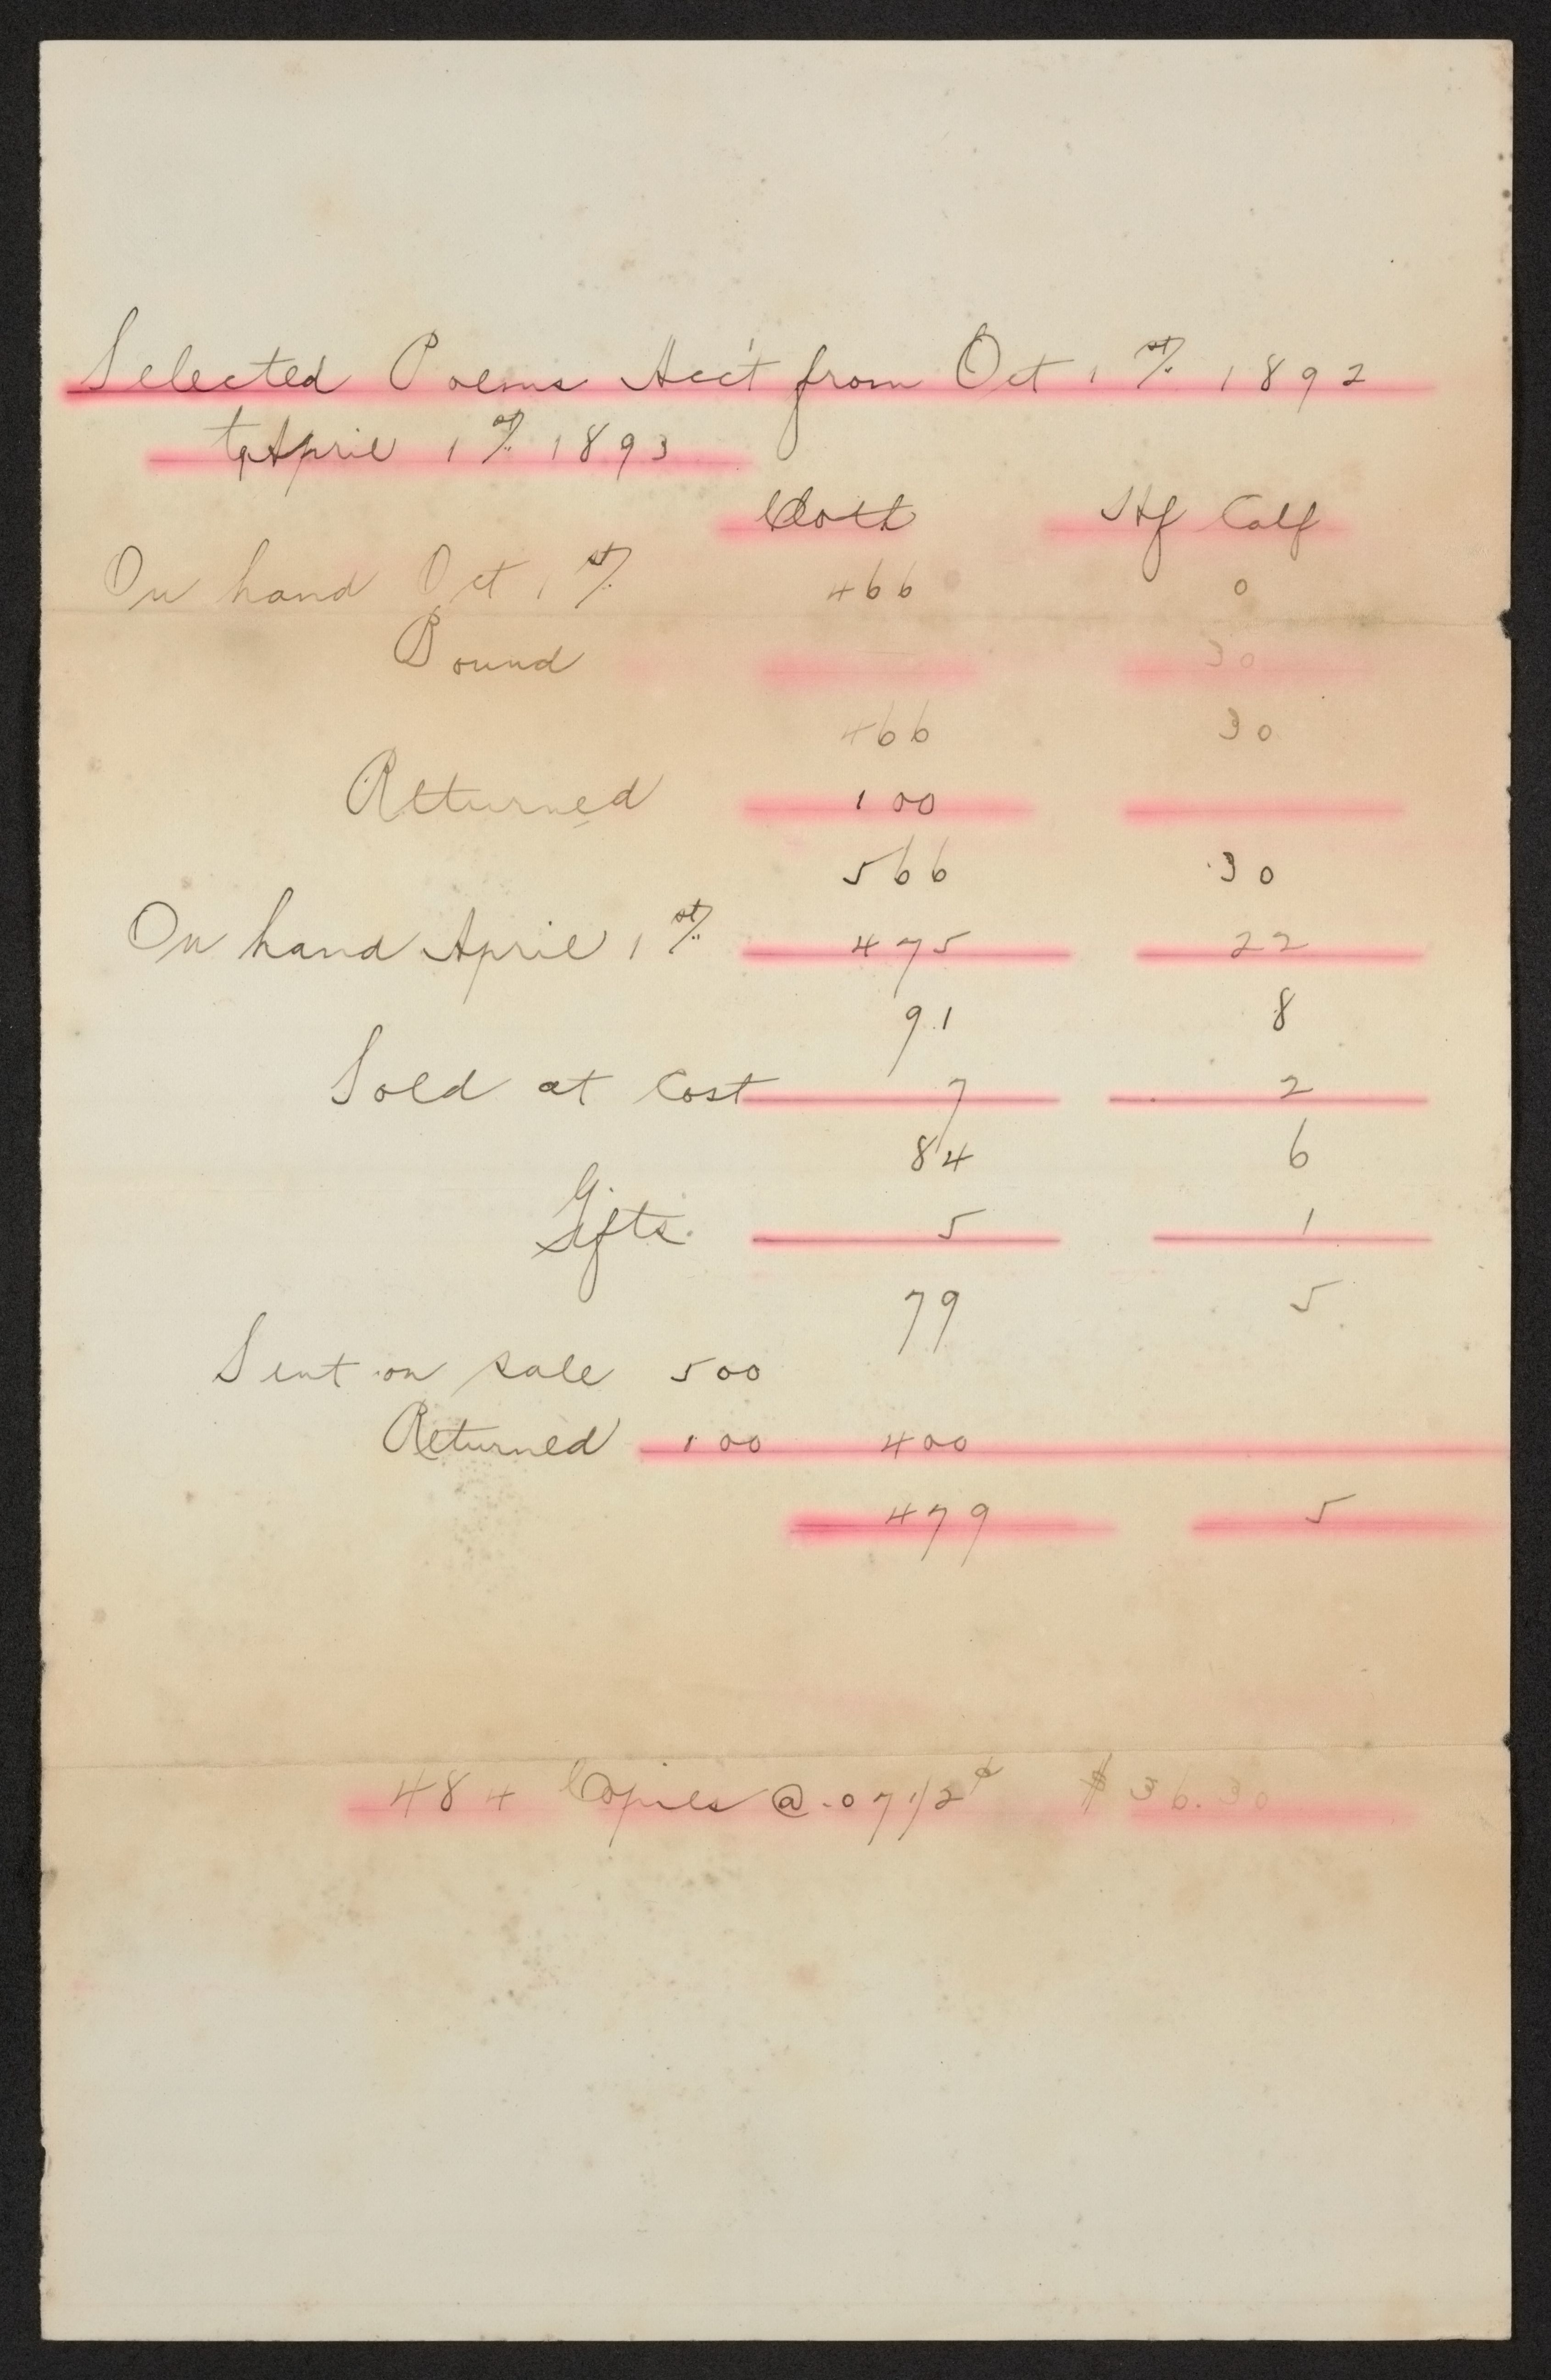 Selected Poems Acc't from Oct 1st 1892
to April 1st 1893
Cloth Hf Calf
On hand Oct 1st 466 0
Bound 30
466 30
Returned 100
566 30
On hand April 1st 475 22
91 8
Sold at Cost 7 2
84 6
Gifts. 5 1
79 5
Sent on sale 500
Returned 100 400
479 5
484 Copies @ .07 1/2¢ $36.30